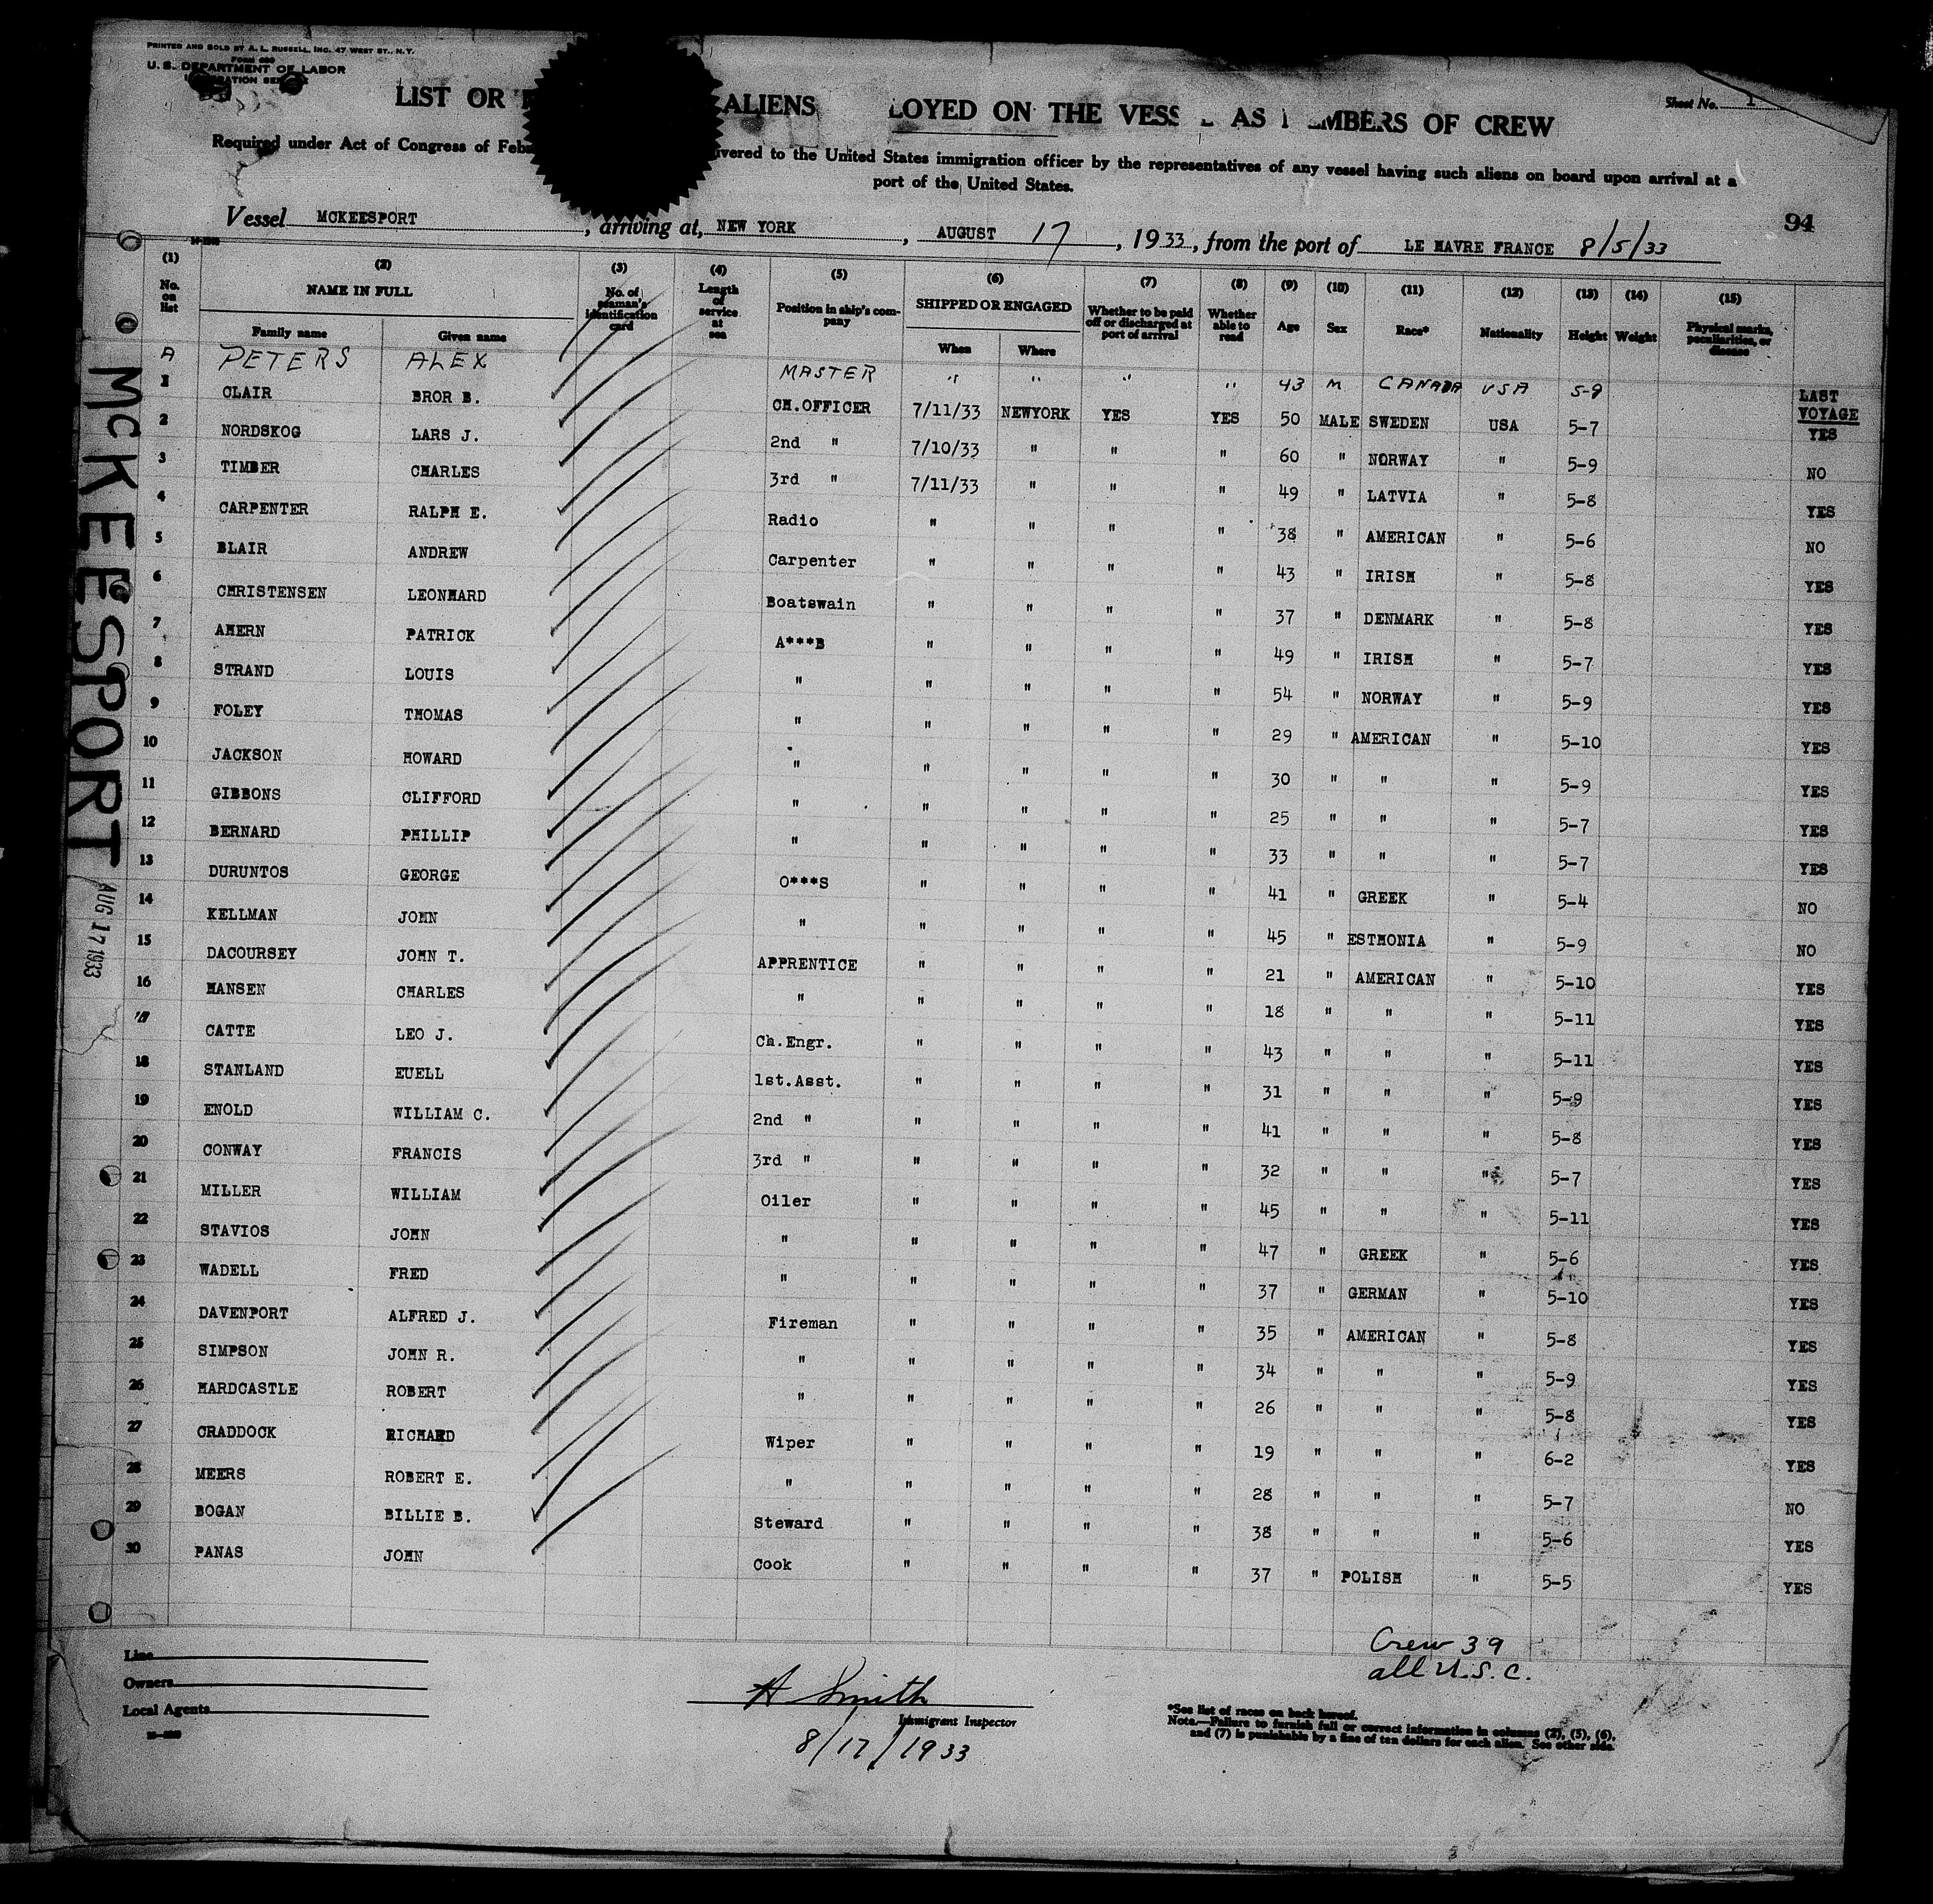 PRINTED AND SOLD BY A. L. RUSSELL, INC. 47 WEST ST., N.Y.
FORM 680
U. S. DEPARTMENT OF LABOR
Sheet No. 1
LIST OR ALIENS LOYED ON THE VESS AS MBERS OF CREW
Required under Act of Congress of Feb ivered to the United States immigration officer by the representatives of any vessel having such aliens on board upon arrival at a
port of the United States.
94
Vessel MCKEESPORT, arriving at, NEW YORK, AUGUST 17, 1933, from the port of LE HAVRE FRANCE 8/5/33
(1) (2) (3) (4) (5) (6) (7) (8) (9) (10) (11) (12) (13) (14) (15)
No. on list NAME IN FULL No. of seaman's identification card Length of service at sea Position in ship's company SHIPPED OR ENGAGED Whether to be paid off or discharged at port of arrival Whether able to read Age Sex Race* Nationality Height Weight Physical marks, peculiarities, or disease
Family name Given name When Where
A PETERS ALEX MASTER " " " " 43 M CANADA USA 5-9
LAST VOYAGE
1 CLAIR BROR B. CH.OFFICER 7/11/33 NEWYORK YES YES 50 MALE SWEDEN USA 5-7 YES
2 NORDSKOG LARS J. 2nd " 7/10/33 " " " 60 " NORWAY " 5-9 NO
3 TIMBER CHARLES 3rd " 7/11/33 " " " 49 " LATVIA " 5-8 YES
4 CARPENTER RALPH E. Radio " " " " 38 " AMERICAN " 5-6 NO
5 BLAIR ANDREW Carpenter " " " " 43 " IRISH " 5-8 YES
6 CHRISTENSEN LEONHARD Boatswain " " " " 37 " DENMARK " 5-8 YES
7 AHERN PATRICK A***B " " " " 49 " IRISH " 5-7 YES
8 STRAND LOUIS " " " " " 54 " NORWAY " 5-9 YES
9 FOLEY THOMAS " " " " " 29 " AMERICAN " 5-10 YES
10 JACKSON HOWARD " " " " " 30 " " " 5-9 YES
11 GIBBONS CLIFFORD " " " " " 25 " " " 5-7 YES
12 BERNARD PHILLIP " " " " " 33 " " " 5-7 YES
13 DURUNTOS GEORGE O***S " " " " 41 " GREEK " 5-4 NO
14 KELLMAN JOHN " " " " " 45 " ESTHONIA " 5-9 NO
15 DACOURSEY JOHN T. APPRENTICE " " " " 21 " AMERICAN " 5-10 YES
16 HANSEN CHARLES " " " " " 18 " " " 5-11 YES
17 CATTE LEO J. Ch.Engr. " " " " 43 " " " 5-11 YES
18 STANLAND EUELL 1st.Asst. " " " " 31 " " " 5-9 YES
19 ENOLD WILLIAM C. 2nd " " " " " 41 " " " 5-8 YES
20 CONWAY FRANCIS 3rd " " " " " 32 " " " 5-7 YES
21 MILLER WILLIAM Oiler " " " " 45 " " " 5-11 YES
22 STAVIOS JOHN " " " " " 47 " GREEK " 5-6 YES
23 WADELL FRED " " " " " 37 " GERMAN " 5-10 YES
24 DAVENPORT ALFRED J. Fireman " " " " 35 " AMERICAN " 5-8 YES
25 SIMPSON JOHN R. " " " " " 34 " " " 5-9 YES
26 HARDCASTLE ROBERT " " " " " 26 " " " 5-8 YES
27 CRADDOCK RICHARD Wiper " " " " 19 " " " 6-2 YES
28 MEERS ROBERT E. " " " " " 28 " " " 5-7 NO
29 BOGAN BILLIE B. Steward " " " " 38 " " " 5-6 YES
30 PANAS JOHN Cook " " " " 37 " POLISH " 5-5 YES
MCKEESPORT
AUG 17 1933
Crew 39
all U.S.C.
Line
Owners
Local Agents
A Smith
Immigrant Inspector
8/17/1933
*See list of races on back hereof.
Note.—Failure to furnish full or correct information in columns (2), (5), (6),
and (7) is punishable by a fine of ten dollars for each alien. See other side.